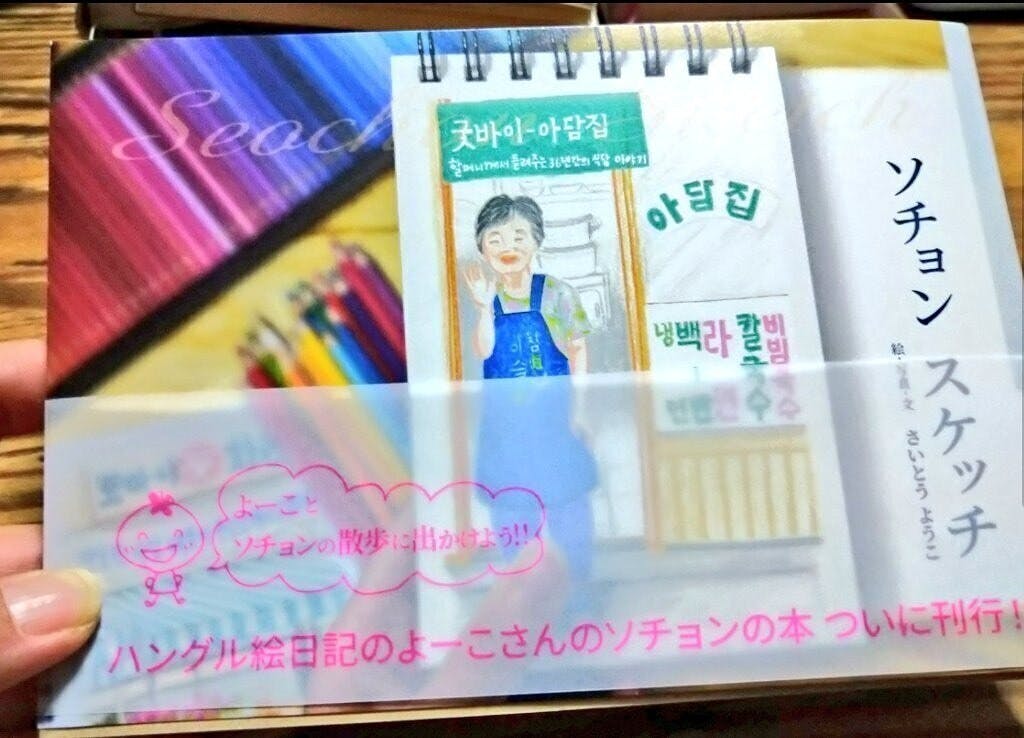 Seoch
ソチョン
スケッチ
絵・写真・文 さいとう ようこ
굿바이-아담집
할머니께서 들려주는 36년간의 식당 이야기
아담집
비빔국수
칼국수
라면
백반
냉
よーこと
ソチョンの散歩に出かけよう!!
ハングル絵日記のよーこさんのソチョンの本 ついに刊行!